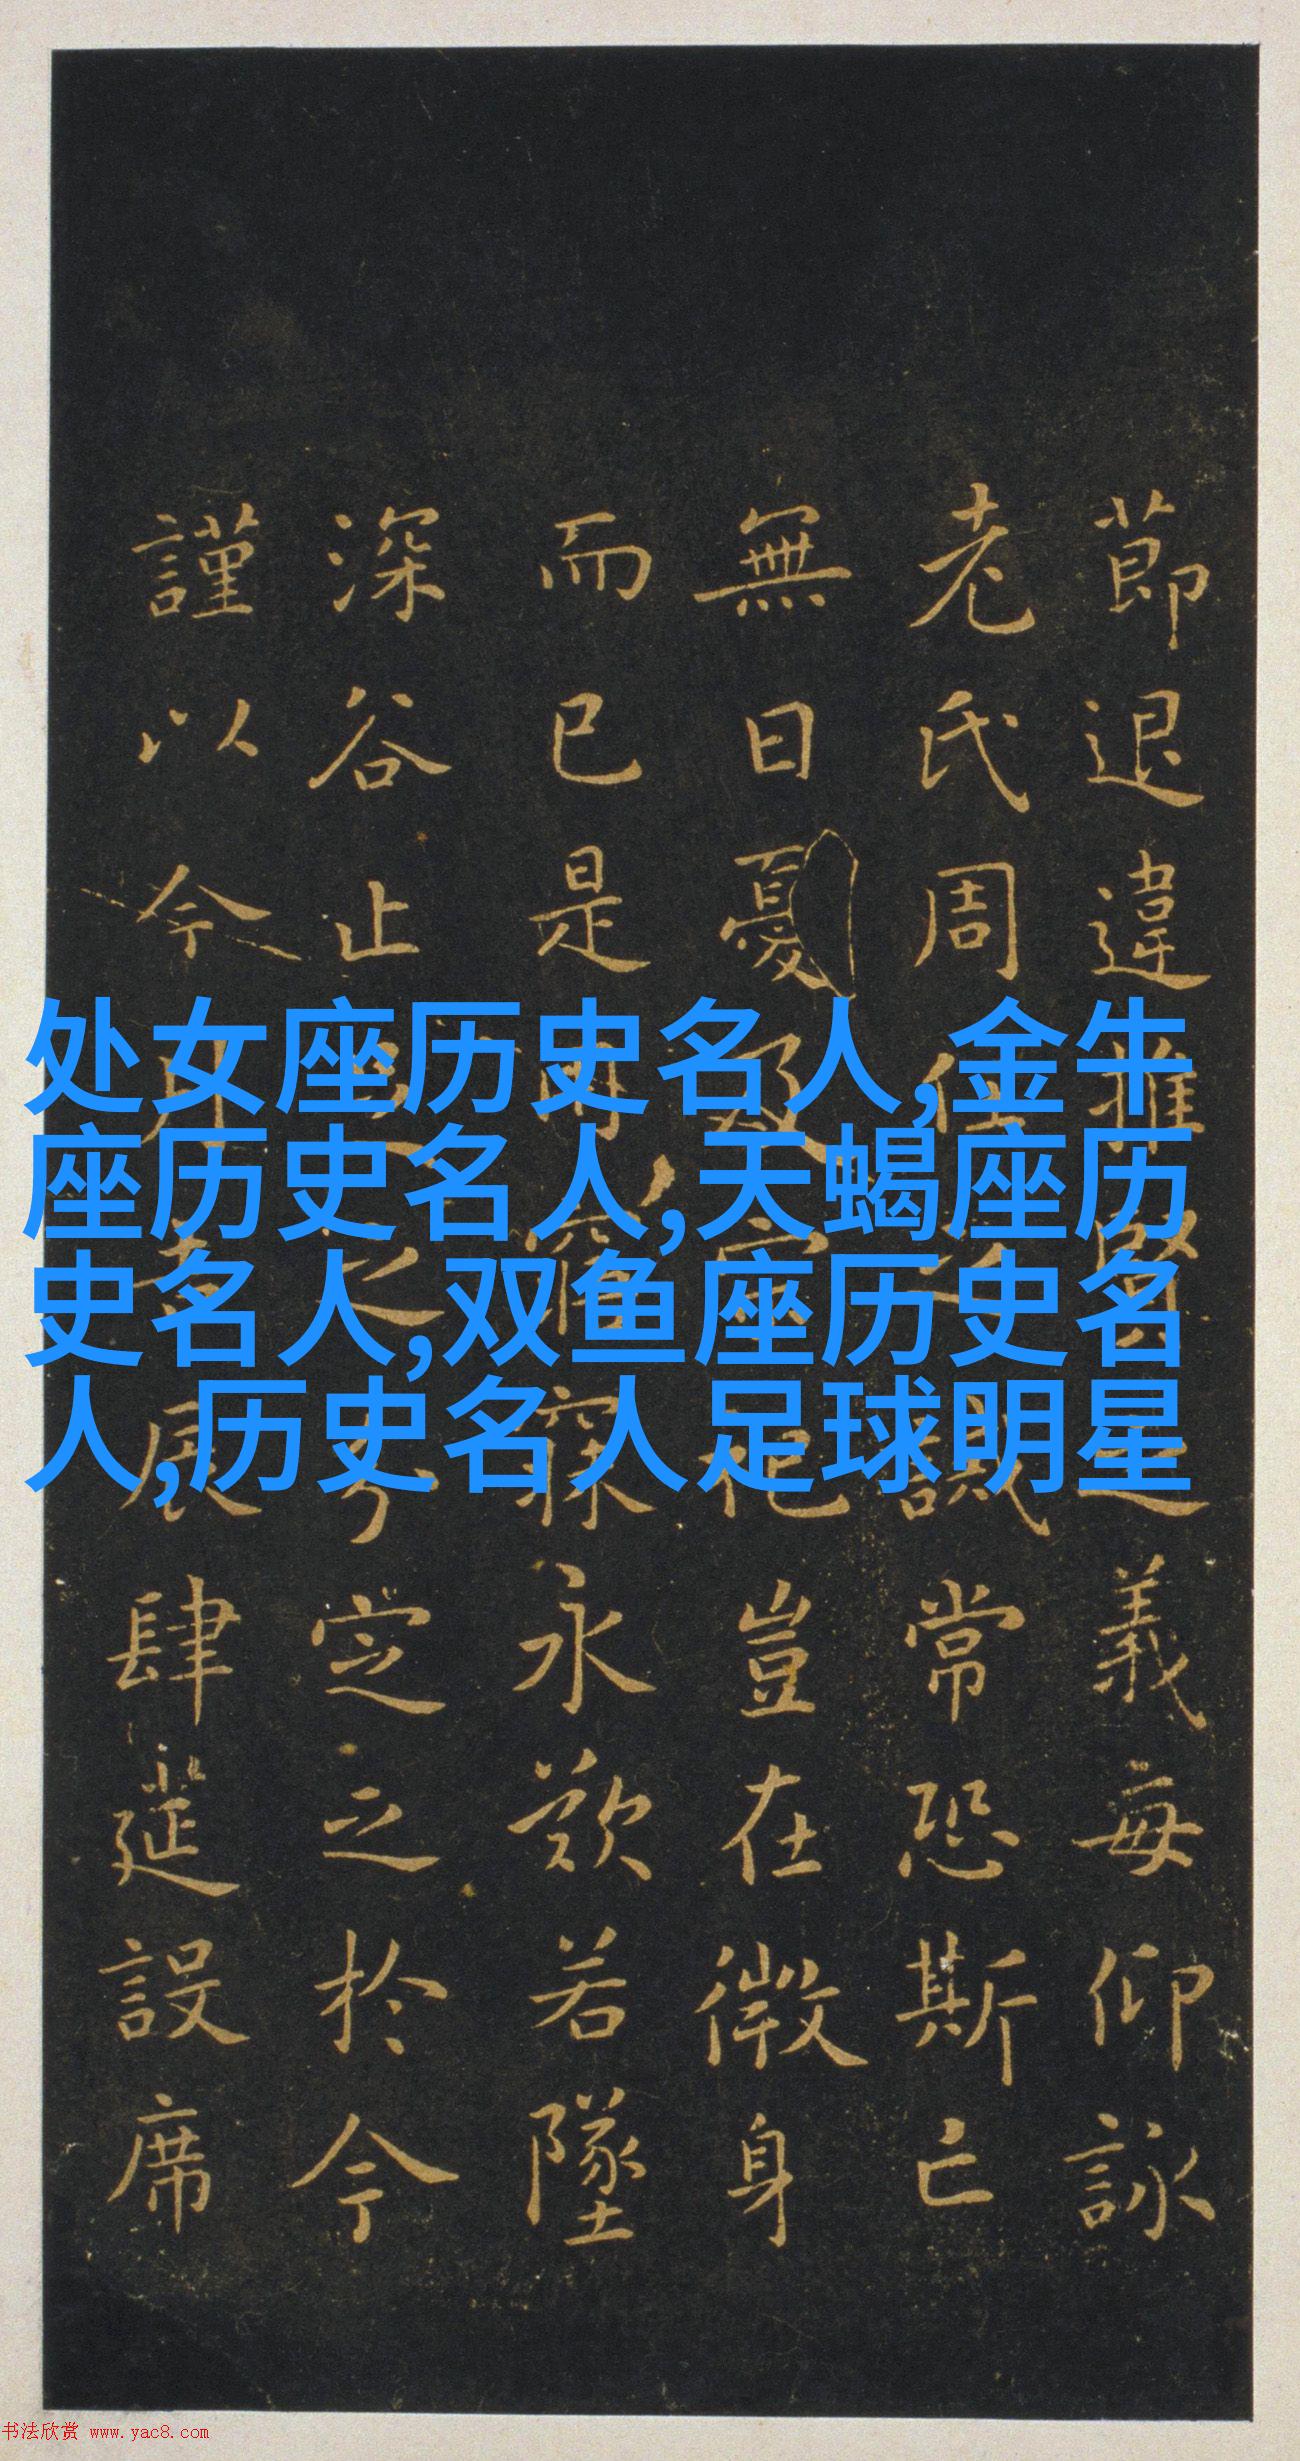 節退違推賢之義每仰詠
老氏周任之誡常恐斯亡
無日憂及宗祀豈在微身
而已是用寤寐永歎若墜
深谷止足之分定之於今
謹以今月吉辰肆筵設席
处女座历史名人,金牛
座历史名人,天蝎座历
史名人,双鱼座历史名
人,历史名人足球明星
书法欣赏 www.yac8.com